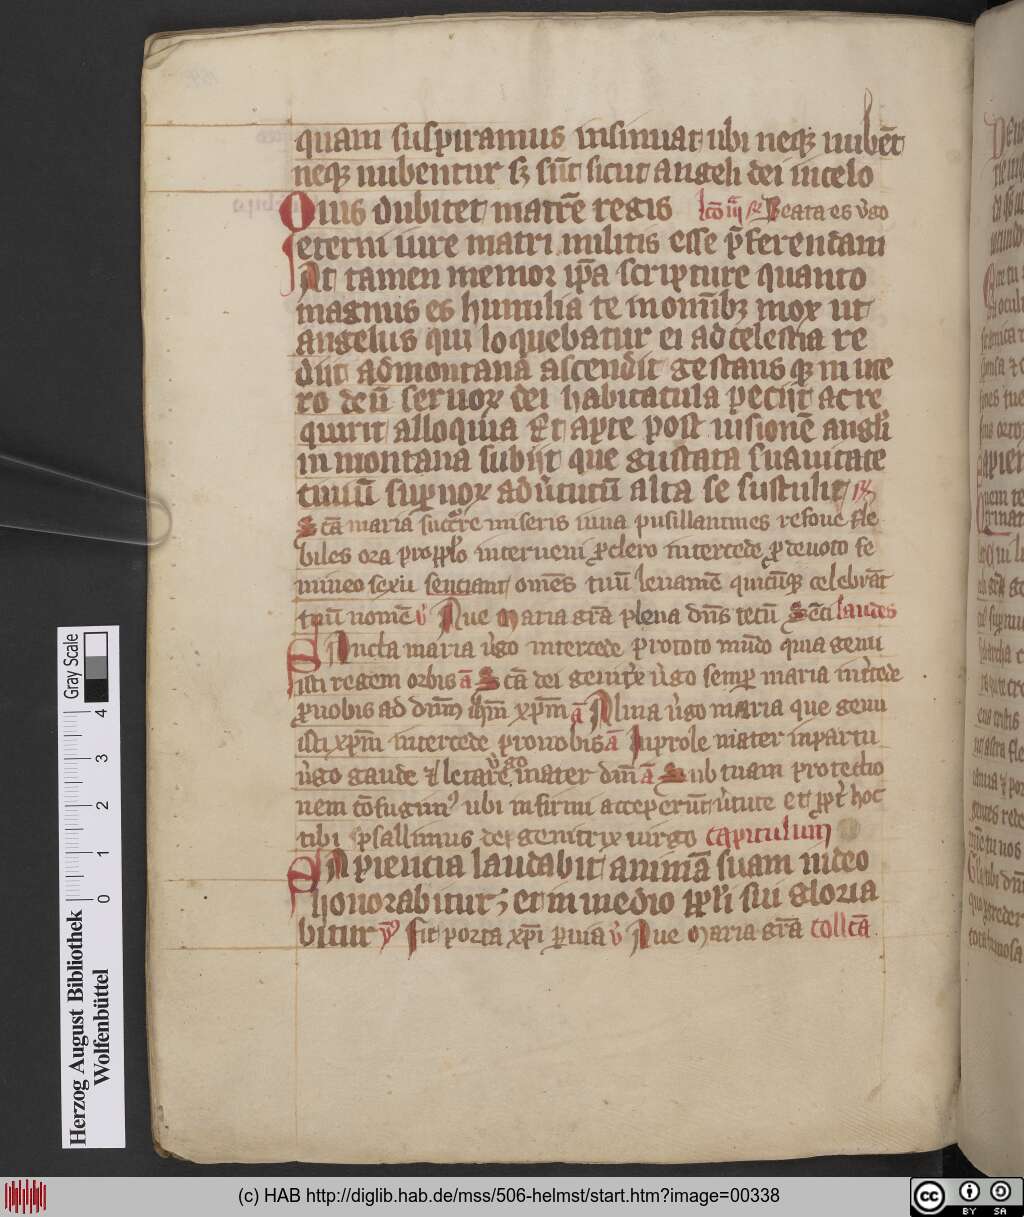 quam suspiramus insinuat ubi neqȝ nubēt
neqȝ nubentur sȝ sūt sicut angeli dei in celo
Quis dubitet matrē regis lcō iij Beata es v̓go
eterni iure matri militis esse p̄ferendam
At tamen memor ip̄a scripture quanto
magnus es humilia te in om̄ibȝ mox ut
angelus qui loquebatur ei ad celestia re
diit ad montana ascendit gestans qȝ in ute
ro deū seruoꝝ dei habitacula peciit ac re
quirit alloquia Et aperte post uisionē angl̓i
in montana subijt que gustata suauitate
ciuiū supnoꝝ ad v̓tutū alta se sustulit
Scā maria succ̄re miseris iuua pusillanimes refoue fle
biles ora pro pplo interueni ꝓ clero intercede ꝓ deuoto fe
mineo sexu senciant omēs tuū leuamē quicūqȝ celebrāt
tuū nomē v̓ Aue Maria grā plena dn̄s tecū Sc̄ci laudes
SAncta maria v̓go intercede pro toto mūdo quia genu
isti regem orbis ā Scā dei genit̓x v̓go semꝑ maria int̓cede
ꝓ nobis ad dn̄m ihm̄ xp̄m ā Alma v̓go maria que genu
isti xp̄m intercede pro nobis ā In prole mater in partu
v̓go gaude ⁊ letare v̓go mater dn̄i ā Sub tuam protectio
nem cōfugim⁹ ubi infirmi acceperūt v̓tute et ppt̓ hoc
tibi psallimus dei genitrix uirgo capitulum
SApiencia laudabit animā suam in deo
honorabitur ⁊ et in medio ppli sui gloria
bitur Fit porta xp̄i ꝑuia v̓ Aue Maria grā collcā
Herzog August Bibliothek
Wolfenbüttel
Gray Scale
0 1 2 3 4
(c) HAB http://diglib.hab.de/mss/506-helmst/start.htm?image=00338
cc BY SA